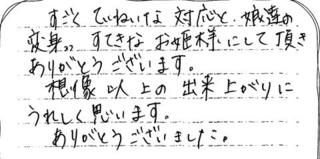 すごくていねいな対応と、娘達の
変身〟すてきなお姫様にして頂き
ありがとうございます。
想像以上の出来上がりに
うれしく思います。
ありがとうございました。